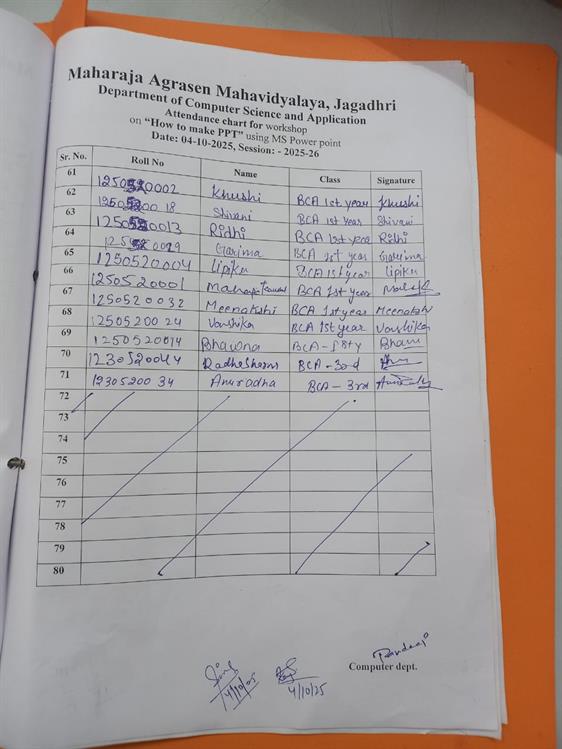 Maharaja Agrasen Mahavidyalaya, Jagadhri
Department of Computer Science and Application
Attendance chart for workshop
on "How to make PPT" using MS Power point
Date: 04-10-2025, Session: - 2025-26
Sr. No. Roll No Name Class Signature
61 1250520002 Khushi BCA 1st year Khushi
62 1250520018 Shivani BCA 1st year Shivani
63 1250520013 Ridhi BCA 1st year Ridhi
64 1250520029 Garima BCA 1st year Garima
65 1250520004 Lipika BCA 1st year Lipika
66 1250520001 BCA 1st year
67 1250520032 Meenakshi BCA 1st year Meenakshi
68 1250520024 Vanshika BCA 1st year Vanshika
69 1250520014 Bhawna BCA - Bhawn
70 1230520044 Radheshyam BCA - 3rd
71 1230520034 Anuradha BCA - 3rd
72
73
74
75
76
77
78
79
80
Computer dept.
4/10/25
4/10/25